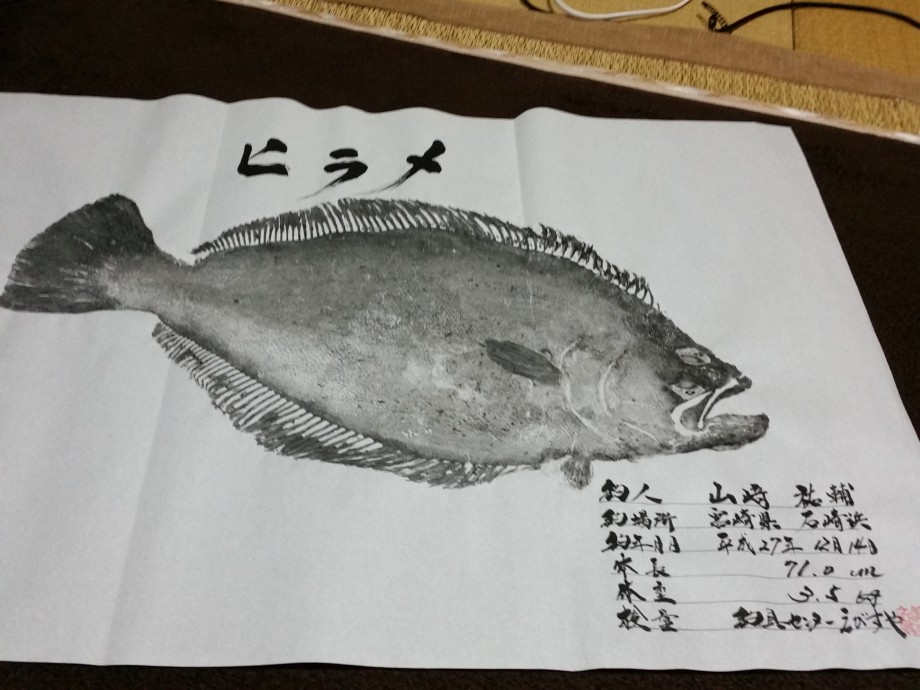 ヒラメ
釣人 山崎 祐輔
釣場所 宮崎県 石崎浜
釣年月日 平成27年 12月14日
体長 71.0 cm
体重 3.5 kg
検量 釣具センターえびすや